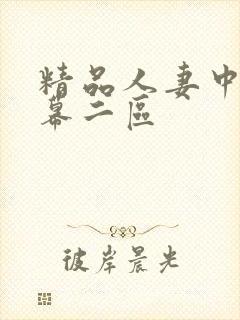 精品人妻中
幕二區
彼岸晨光